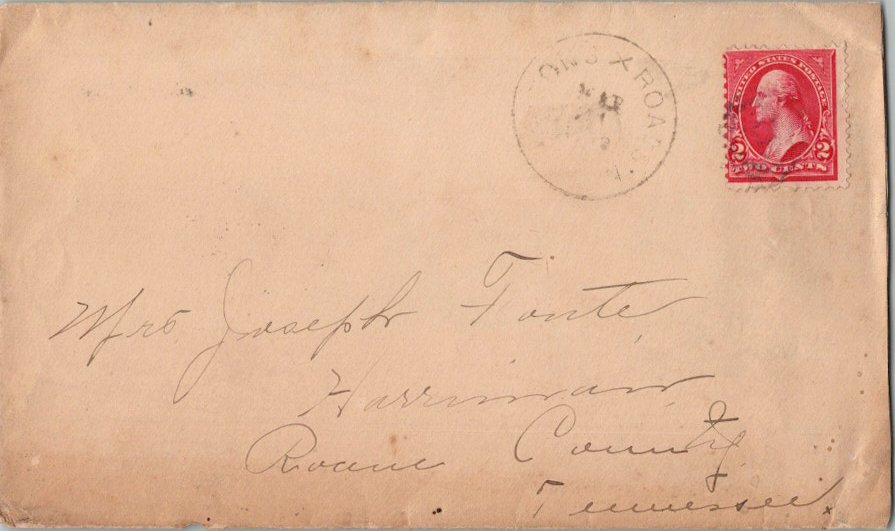 ONS X ROADS. N.
MAR
UNITED STATES POSTAGE
2 2
TWO CENTS
Mrs Joseph Foute
Harriman
Roane County
Tennessee